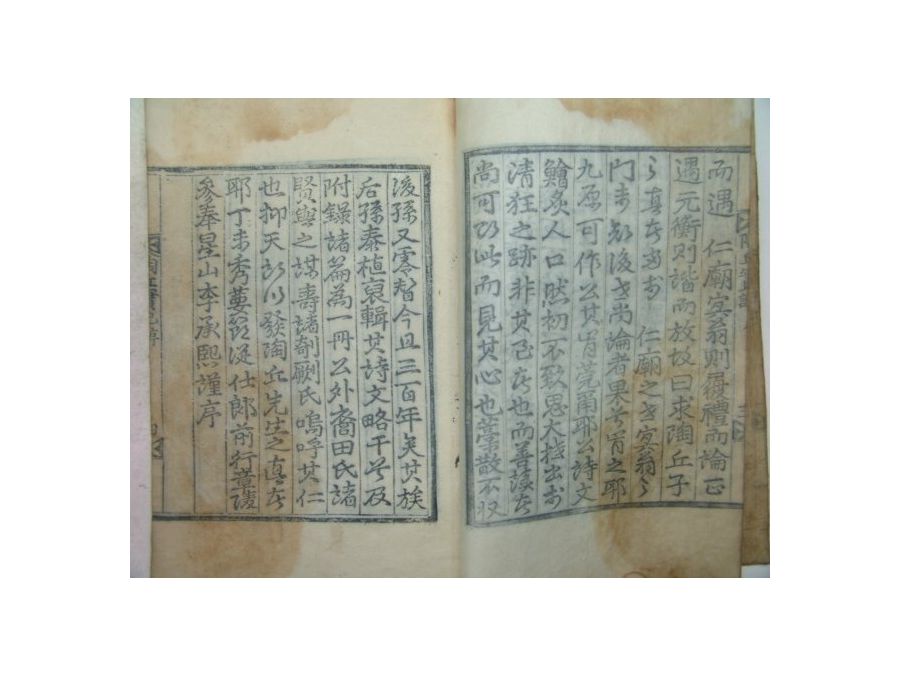 而遇 仁廟寅翁則履禮而論正
遇元衡則諧而放故曰求陶丘子
之真者當於 仁廟之世寅翁之
門未知後世尚論者果以肯之耶
九原可作公其肯莞爾耶公詩文
鱠炙人口然初不致思大抵出於
清狂之跡非其至者也而善讀者
尚可以此而見其心也帶散不収
後孫又零替今且三百年矣其族
后孫泰植裒輯其詩文略干首及
附錄諸篇為一冊公外裔田氏諸
賢與之謀壽諸剞劂氏嗚呼其仁
也抑天所以發陶丘先生之真者
耶丁未秀葽節從仕郎前行章陵
參奉星山李承熙謹序